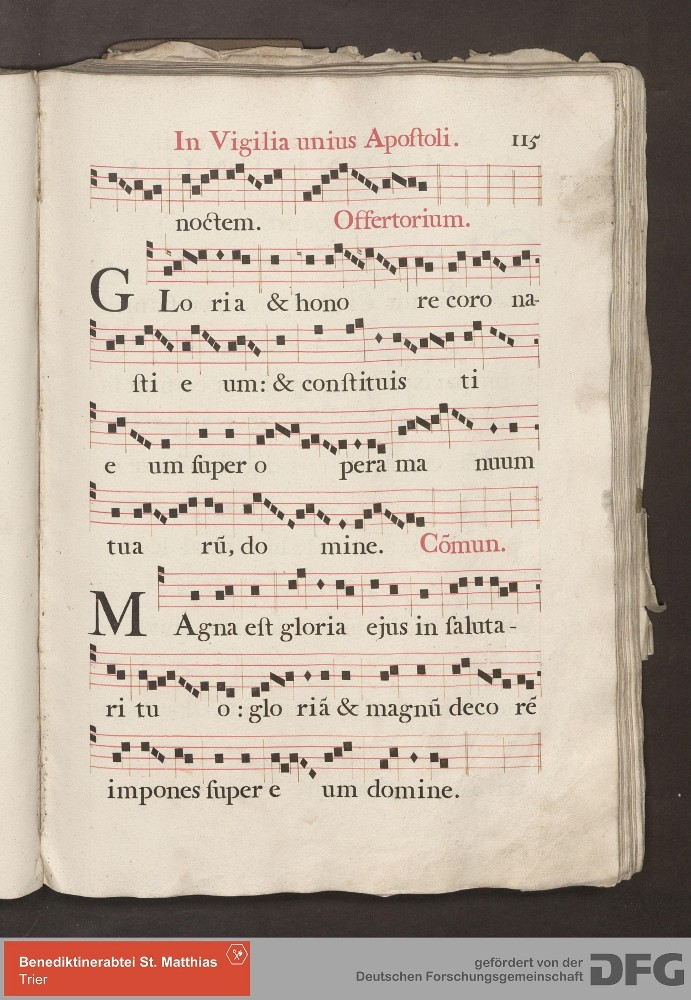 In Vigilia unius Apoſtoli. 115
noctem. Offertorium.
GLo ria & hono re coro na-
ſti e um: & conſtituis ti
e um ſuper o pera ma nuum
tua rū, do mine. Cōmun.
MAgna eſt gloria ejus in ſaluta-
ri tu o : glo riā & magnū deco rē
impones ſuper e um domine.
Benediktinerabtei St. Matthias
Trier
gefördert von der
Deutschen Forschungsgemeinschaft
DFG